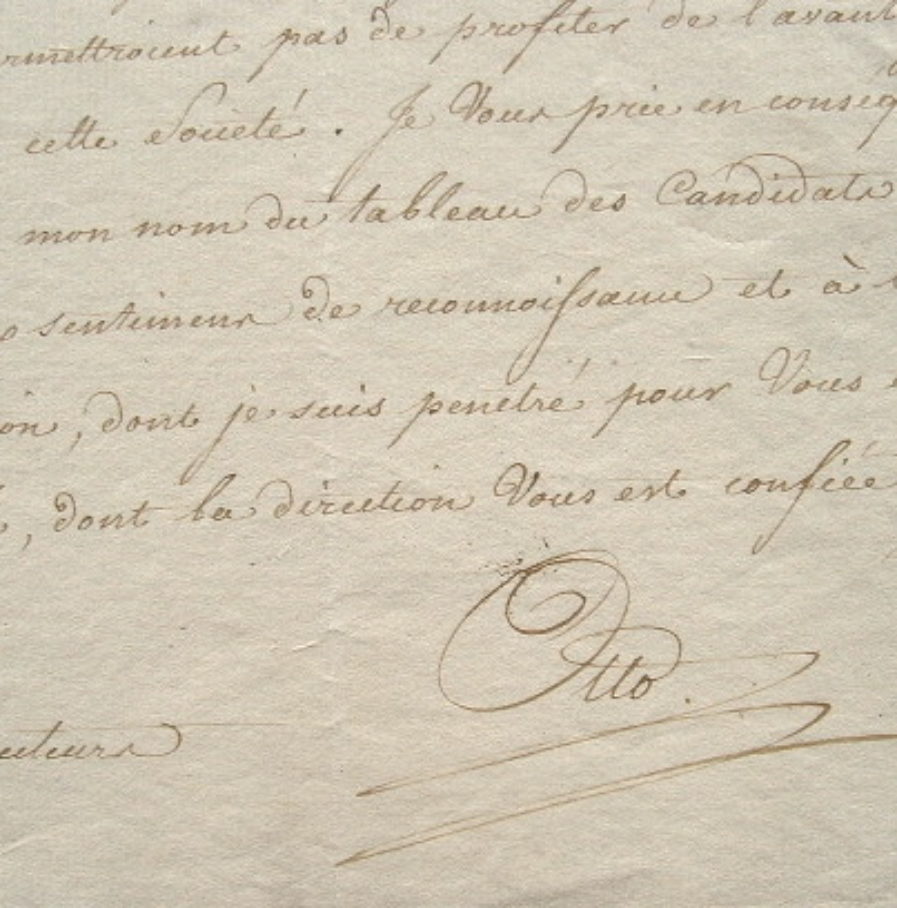 rmettroient pas de profiter de l'avant
cette Societé. Je Vous prie en conséq
mon nom du tableau des Candidats
sentimens de reconnoissance et à
on, dont je suis penetré pour Vous
, dont la direction Vous est confiée
Otto
cuteurs